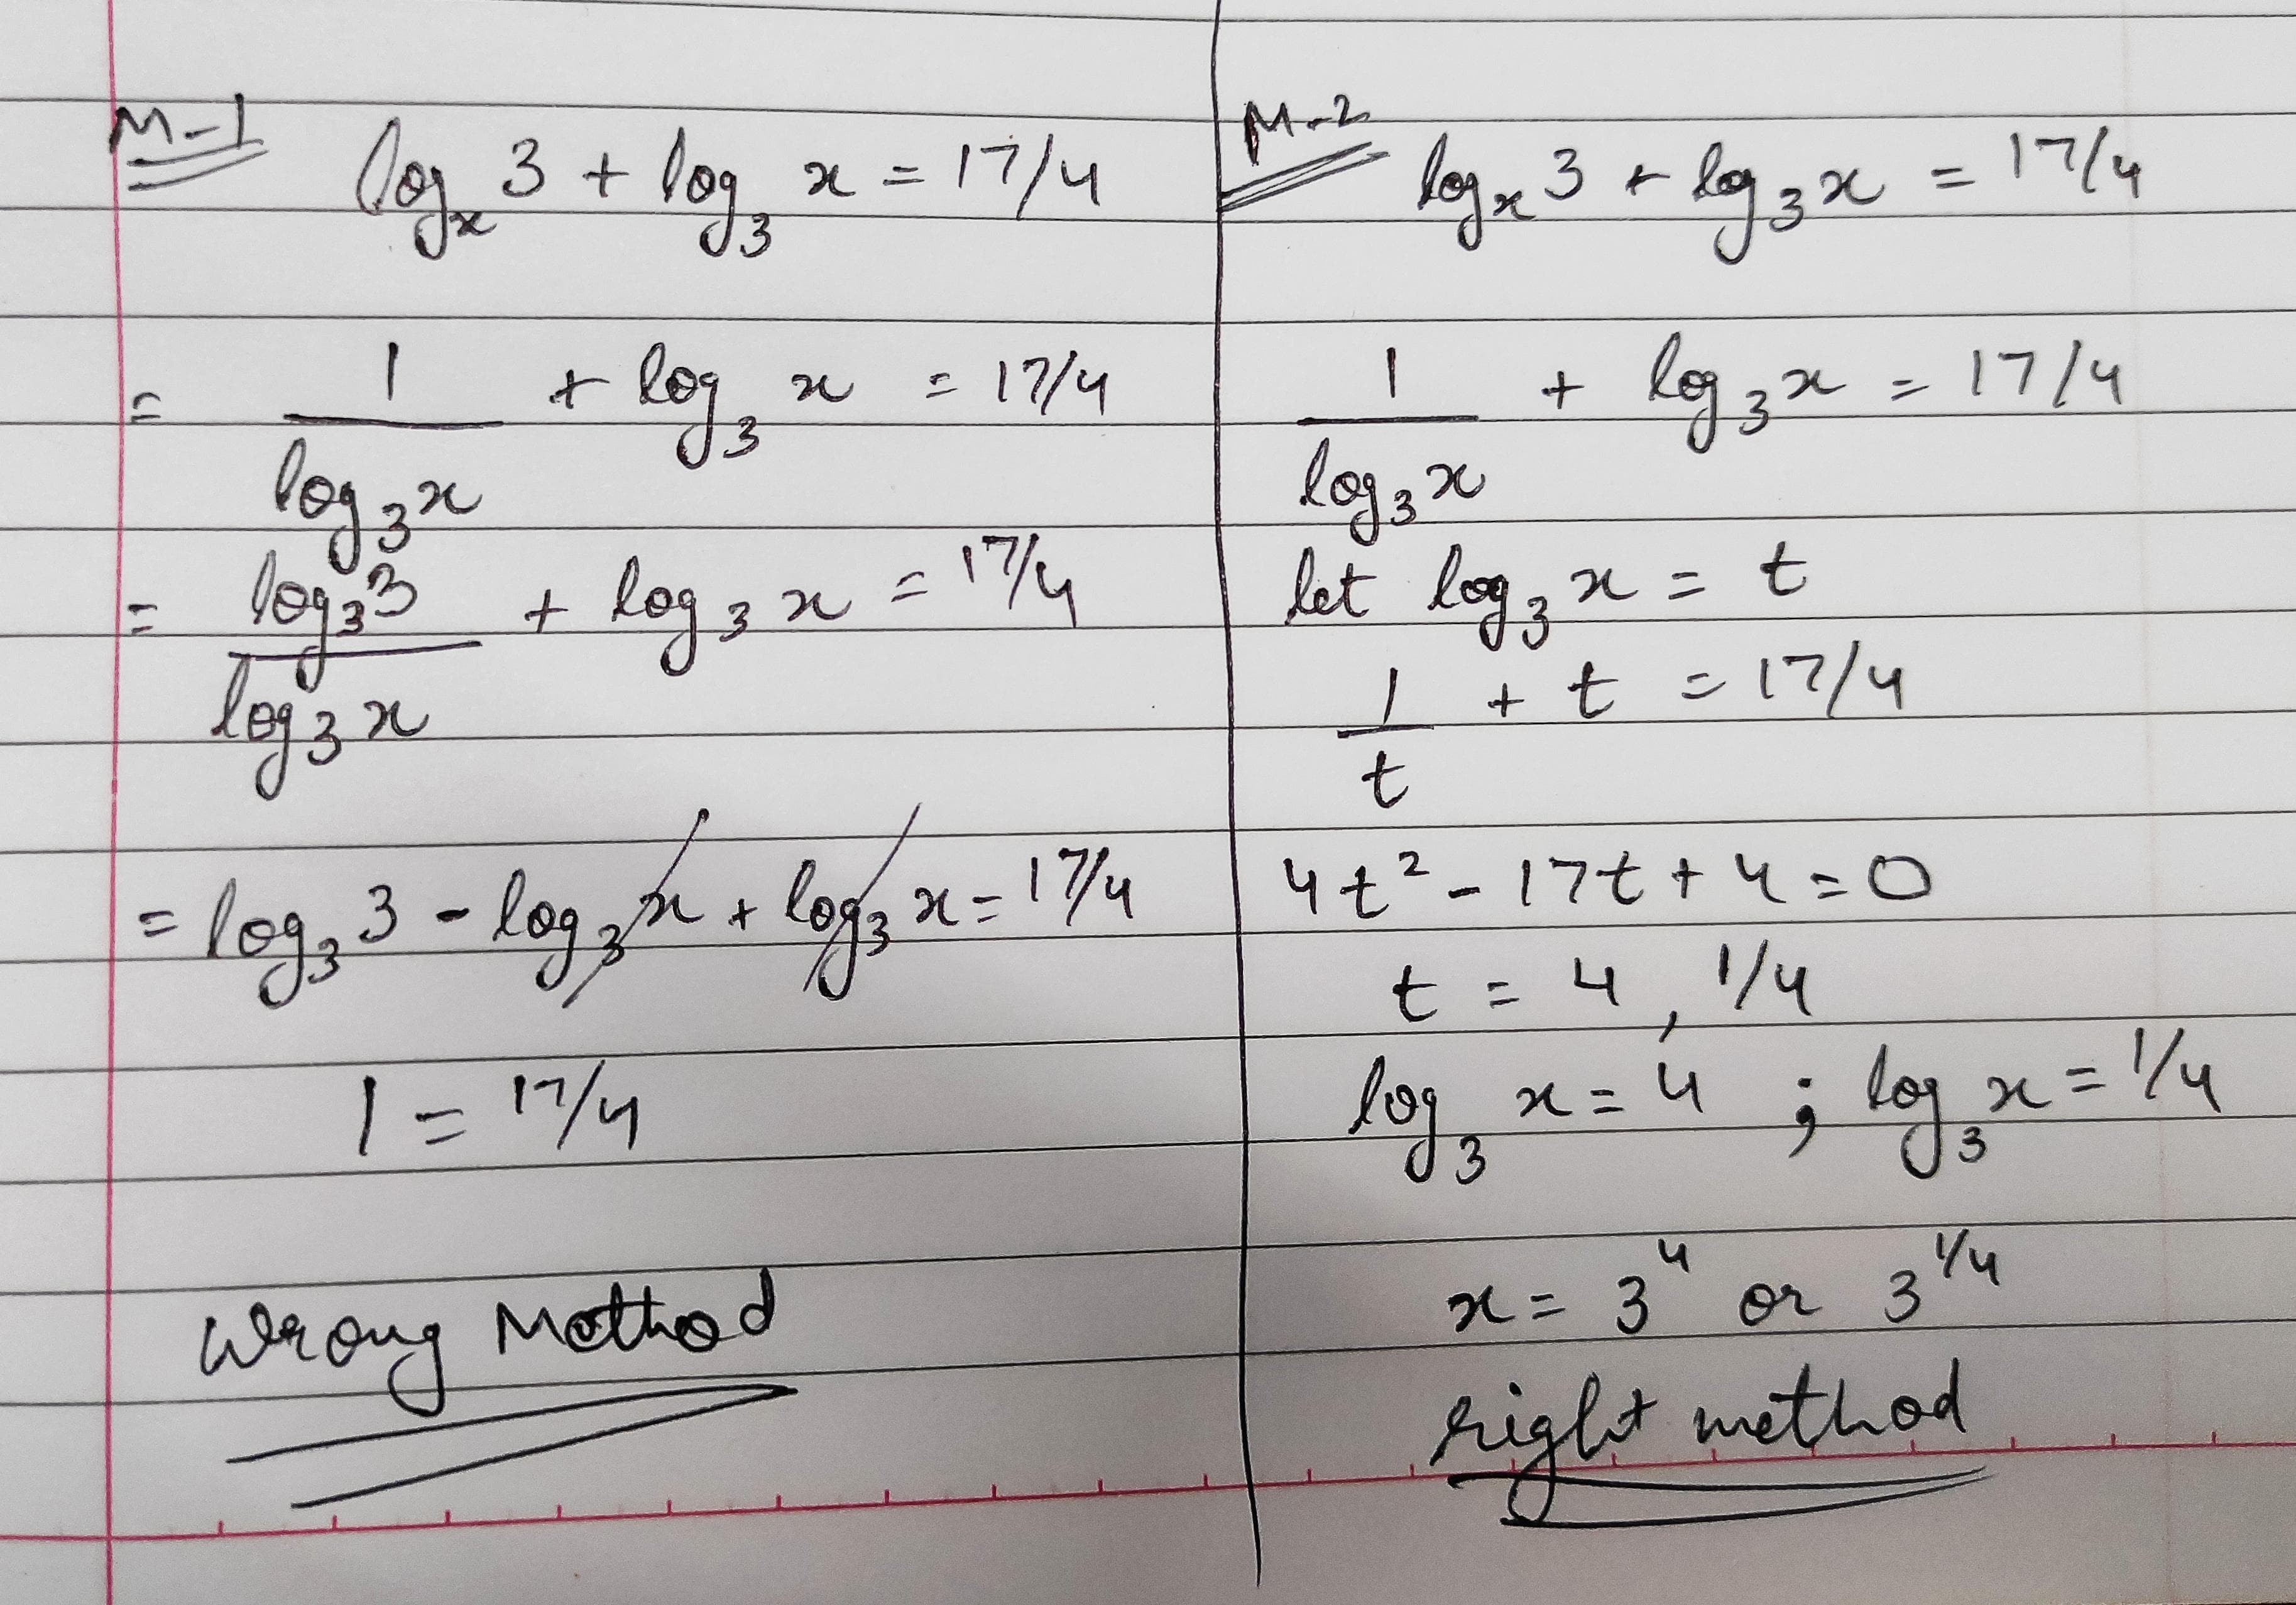 M-1
log_x 3 + log_3 x = 17/4
= 1/log_3 x + log_3 x = 17/4
= log_3 3/log_3 x + log_3 x = 17/4
= log_3 3 - log_3 x + log_3 x = 17/4
1 = 17/4
Wrong Method
M-2
log_x 3 + log_3 x = 17/4
1/log_3 x + log_3 x = 17/4
let log_3 x = t
1/t + t = 17/4
4t² - 17t + 4 = 0
t = 4, 1/4
log_3 x = 4 ; log_3 x = 1/4
x = 3^4 or 3^1/4
right method